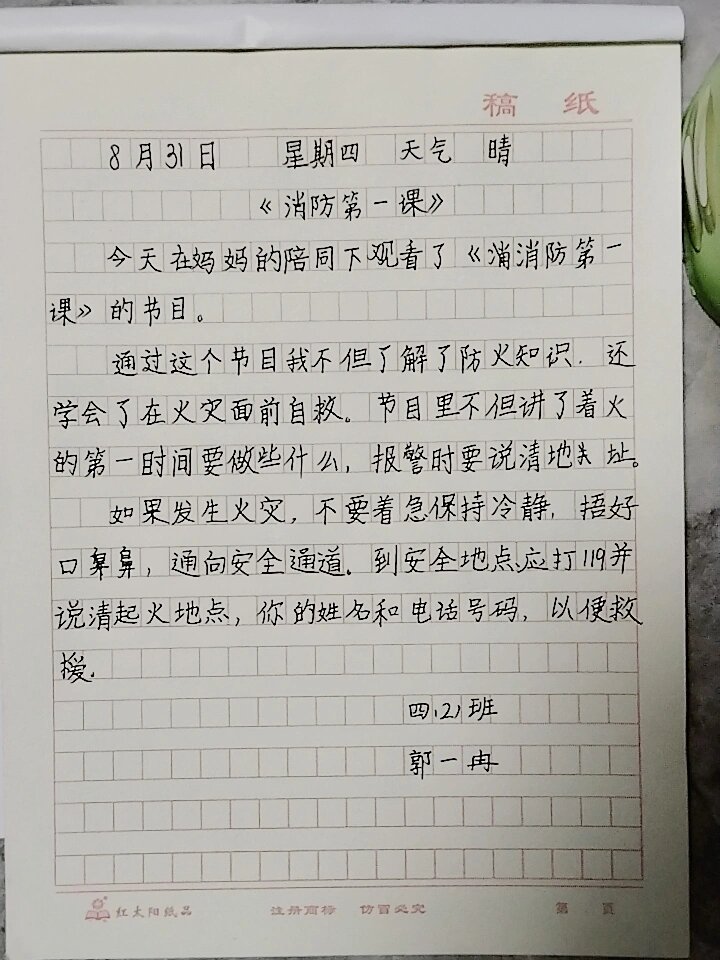 稿 纸
8月31日 星期四 天气 晴
《消防第一课》
今天在妈妈的陪同下观看了《消防第一
课》的节目。
通过这个节目我不但了解了防火知识.还
学会了在火灾面前自救。节目里不但讲了着火
的第一时间要做些什么,报警时要说清地址。
如果发生火灾,不要着急保持冷静,捂好
口鼻,通向安全通道.到安全地点、应打119并
说清起火地点,你的姓名和电话号码,以便救
援.
四(2)班
郭一冉
红太阳纸品 注册商标 仿冒必究 第 页